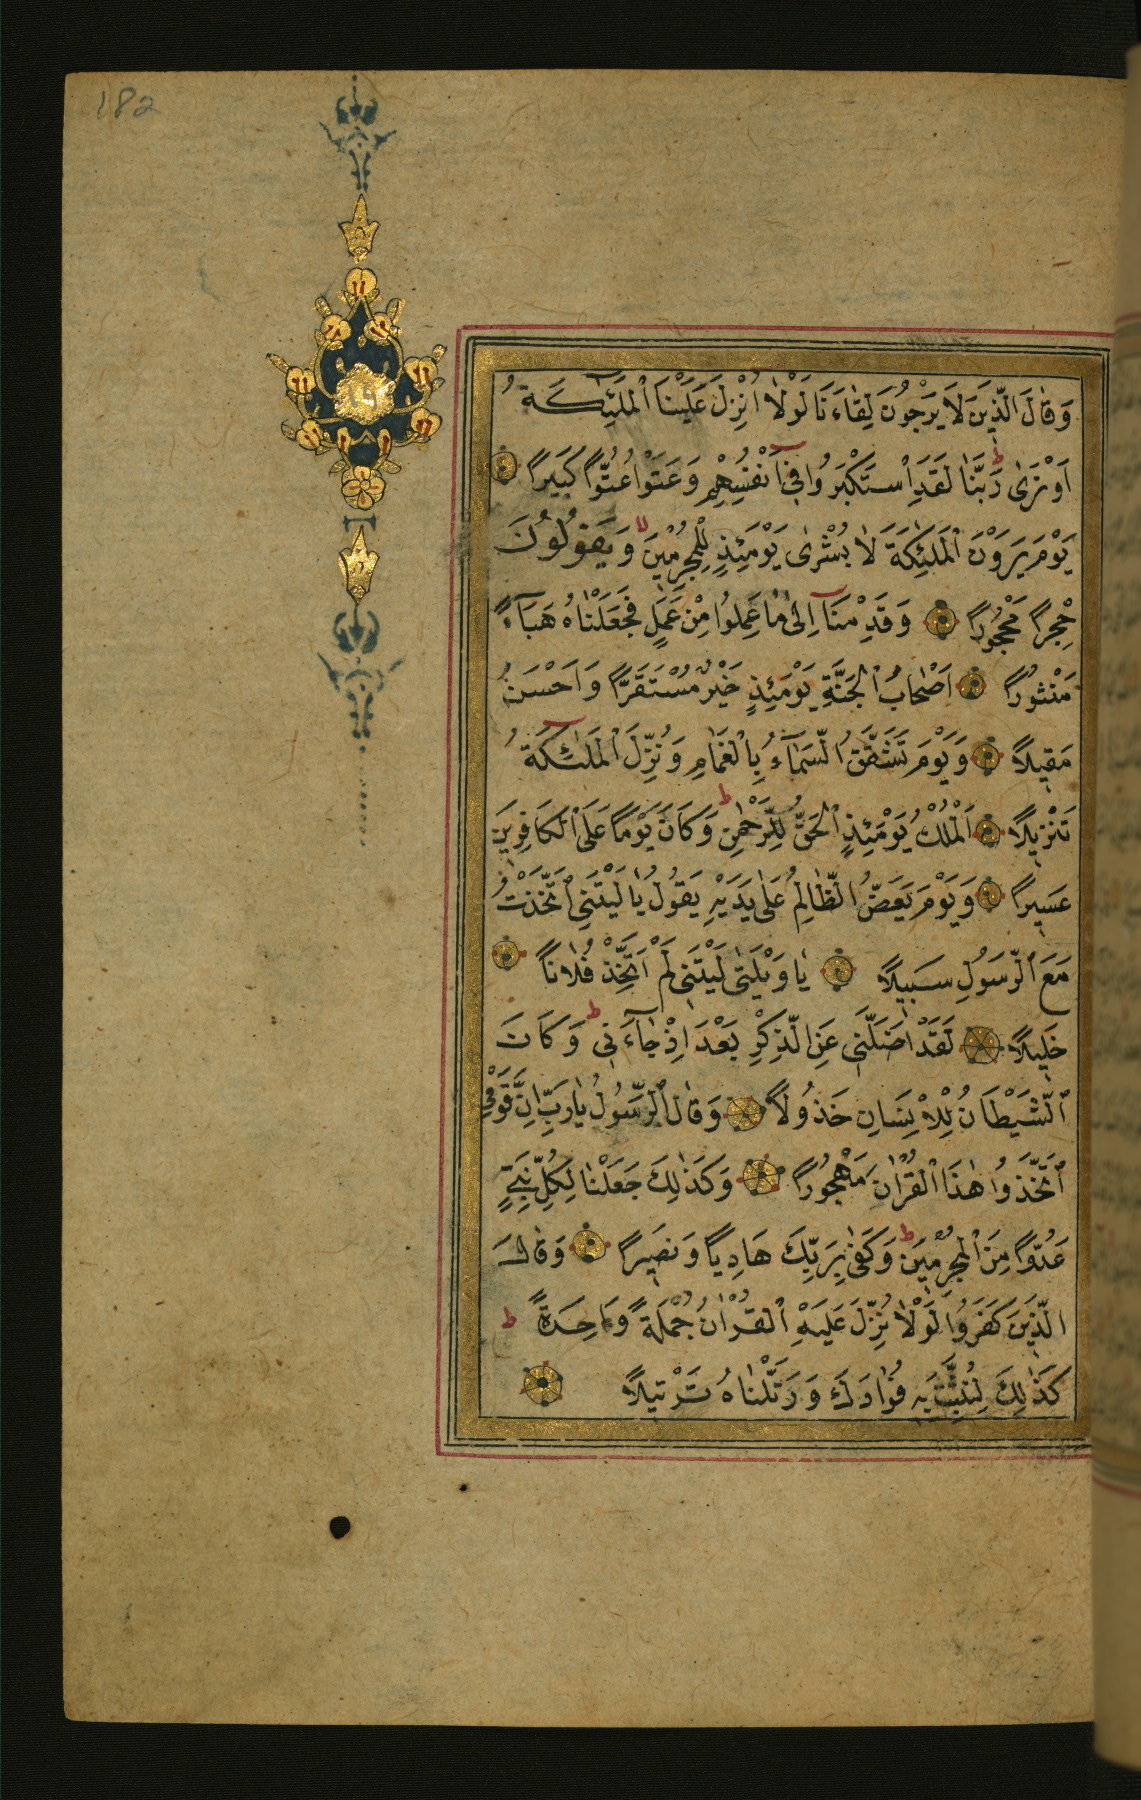 182
وَقَالَ الَّذِينَ لَا يَرْجُونَ لِقَاءَنَا لَوْلَا اُنْزِلَ عَلَيْنَا الْمَلٰئِكَةُ
اَوْ نَرٰى رَبَّنَا لَقَدِ اسْتَكْبَرُوا فِى اَنْفُسِهِمْ وَعَتَوْا عُتُوًّا كَبِيرًا
يَوْمَ يَرَوْنَ الْمَلٰئِكَةَ لَا بُشْرٰى يَوْمَئِذٍ لِلْمُجْرِمِينَ وَيَقُولُونَ
حِجْرًا مَحْجُورًا وَقَدِمْنَا اِلٰى مَا عَمِلُوا مِنْ عَمَلٍ فَجَعَلْنَاهُ هَبَاءً
مَنْثُورًا اَصْحَابُ الْجَنَّةِ يَوْمَئِذٍ خَيْرٌ مُسْتَقَرًّا وَاَحْسَنُ
مَقِيلًا وَيَوْمَ تَشَقَّقُ السَّمَاءُ بِالْغَمَامِ وَنُزِّلَ الْمَلٰئِكَةُ
تَنْزِيلًا اَلْمُلْكُ يَوْمَئِذٍ الْحَقُّ لِلرَّحْمٰنِ وَكَانَ يَوْمًا عَلَى الْكَافِرِينَ
عَسِيرًا وَيَوْمَ يَعَضُّ الظَّالِمُ عَلٰى يَدَيْهِ يَقُولُ يَا لَيْتَنِى اتَّخَذْتُ
مَعَ الرَّسُولِ سَبِيلًا يَا وَيْلَتٰى لَيْتَنِى لَمْ اَتَّخِذْ فُلَانًا
خَلِيلًا لَقَدْ اَضَلَّنِى عَنِ الذِّكْرِ بَعْدَ اِذْ جَاءَنِى وَكَانَ
الشَّيْطَانُ لِلْاِنْسَانِ خَذُولًا وَقَالَ الرَّسُولُ يَا رَبِّ اِنَّ قَوْمِى
اتَّخَذُوا هٰذَا الْقُرْاٰنَ مَهْجُورًا وَكَذٰلِكَ جَعَلْنَا لِكُلِّ نَبِىٍّ
عَدُوًّا مِنَ الْمُجْرِمِينَ وَكَفٰى بِرَبِّكَ هَادِيًا وَنَصِيرًا وَقَالَ
الَّذِينَ كَفَرُوا لَوْلَا نُزِّلَ عَلَيْهِ الْقُرْاٰنُ جُمْلَةً وَاحِدَةً
كَذٰلِكَ لِنُثَبِّتَ بِهِ فُؤَادَكَ وَرَتَّلْنَاهُ تَرْتِيلًا